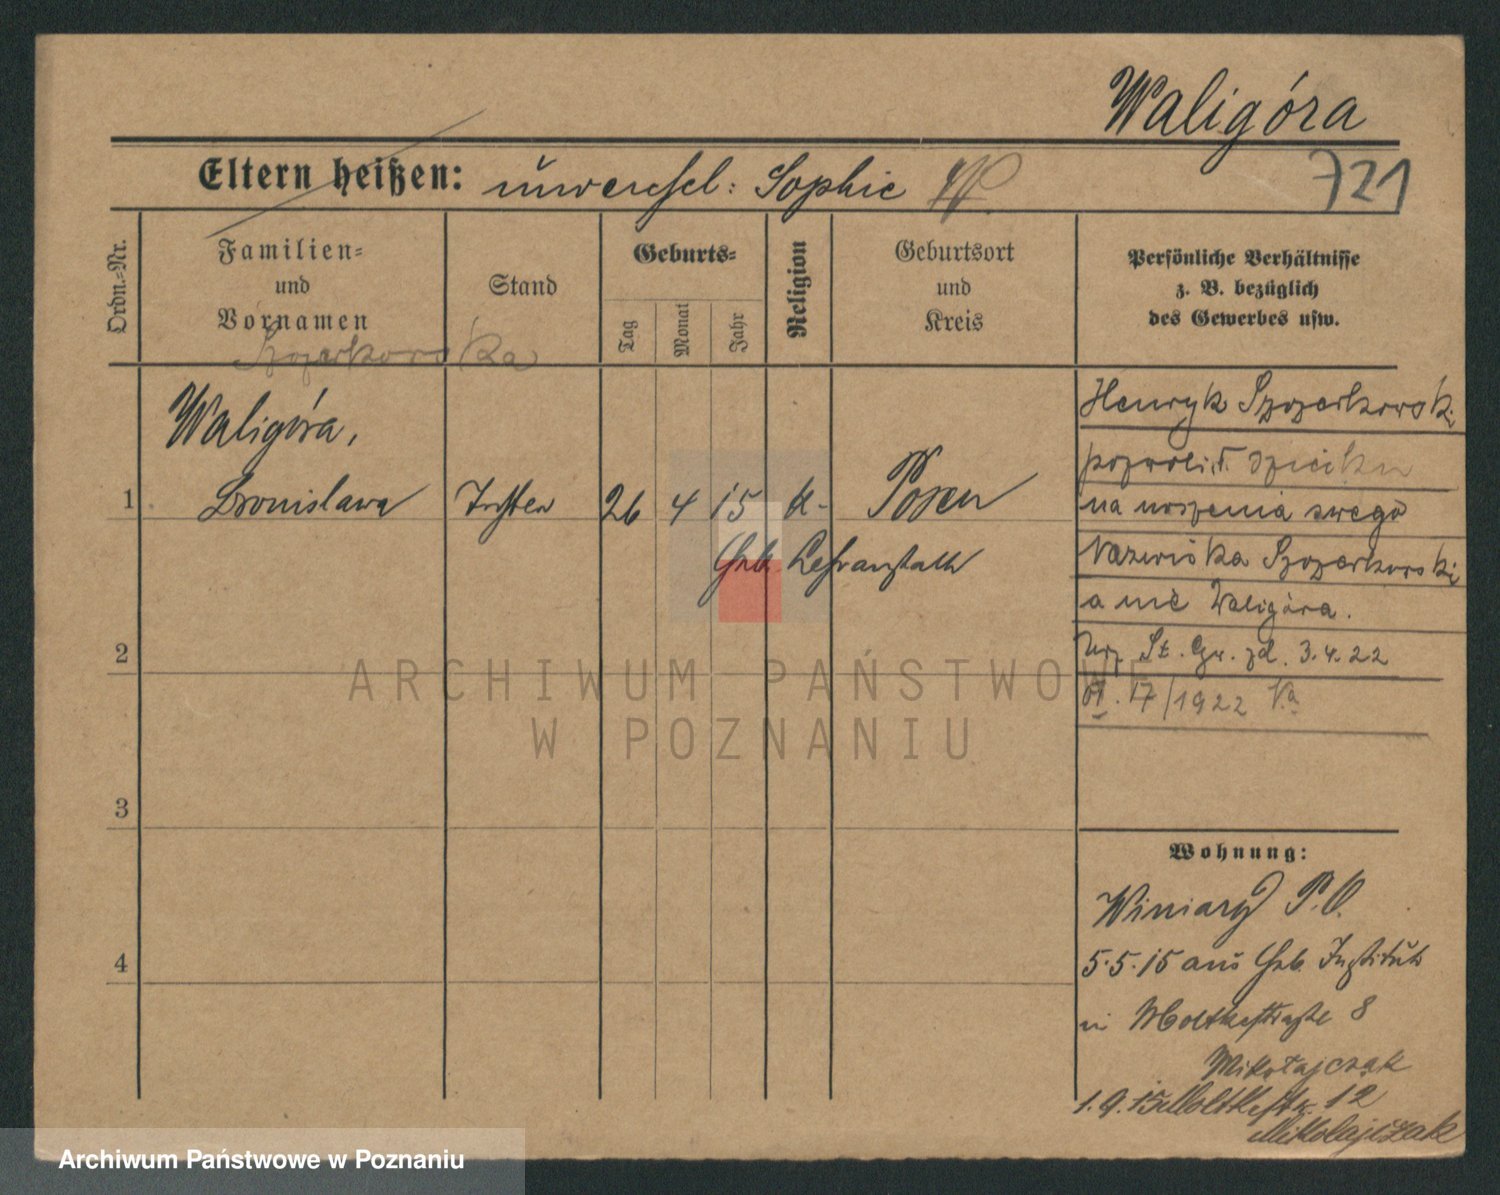 Waligóra
Eltern heißen: unverehel: Sophie W.
721
Ordn.-Nr.
Familien- und Vornamen
Stand
Geburts-
Tag
Monat
Jahr
Religion
Geburtsort und Kreis
Persönliche Verhältnisse
z. B. bezüglich
des Gewerbes usw.
Szozerkowska
Waligóra,
1 Bronislawa Tochter 26 4 15 k. Posen
Geb. Lehranstalt
2
3
4
Henryk Szozerkowski
pozwolił dziecku
na noszenia swego
Nazwiska Szozerkowski
a nie Waligóra.
Urz. St. Gr. zd. 3.4.22
VI. 17/1922
Wohnung:
Winiary P.O.
5.5.15 aus Geb. Institut
in Moltkestraße 8
Mikołajczak
1.9.15 Moltkestr. 12
Mikolajczak
ARCHIWUM PAŃSTWOWE
W POZNANIU
Archiwum Państwowe w Poznaniu